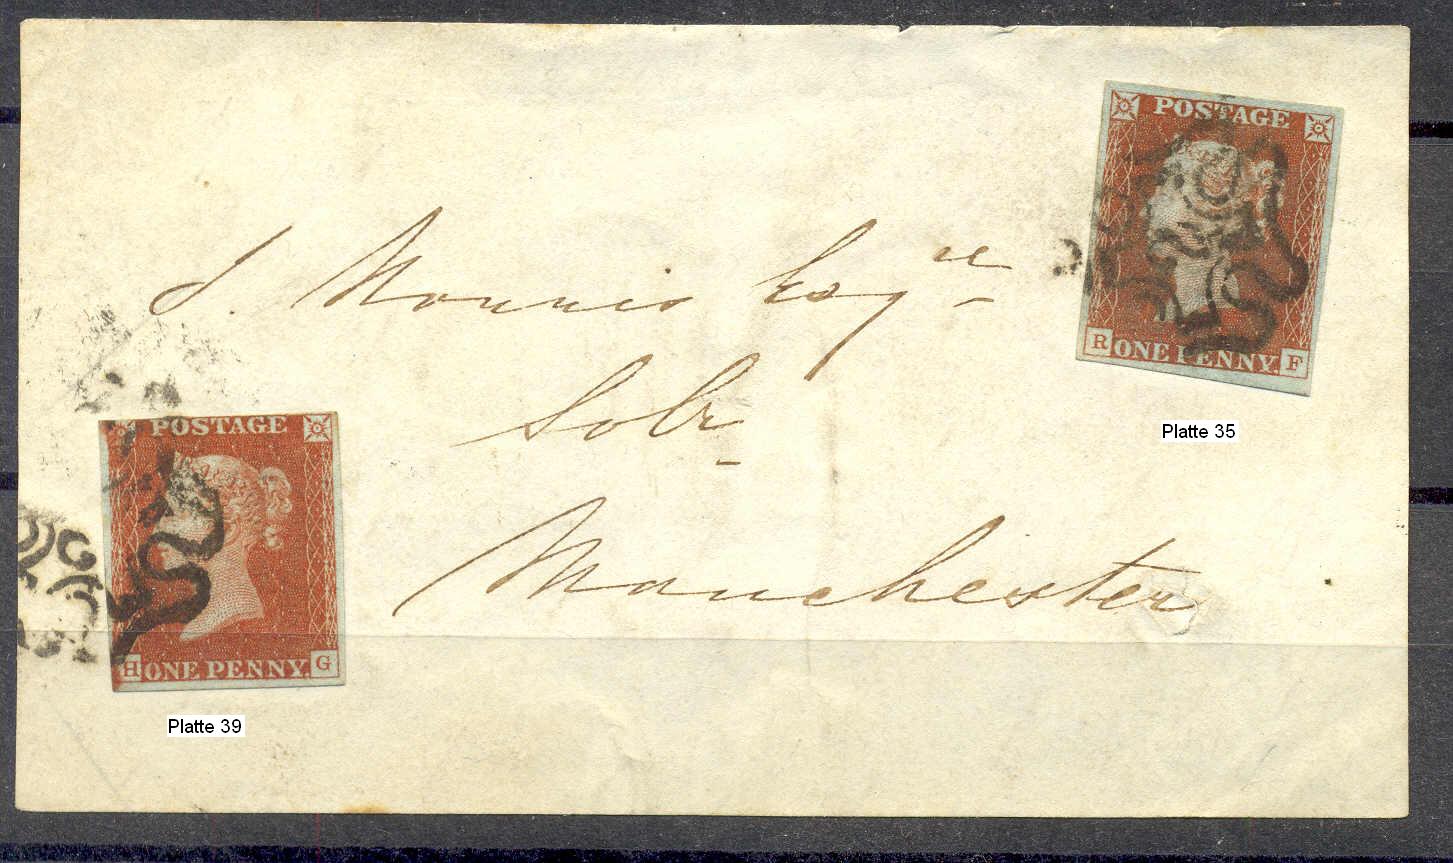 POSTAGE
ONE PENNY.
R F
Platte 35
J. Norris Esqre
Solr
Manchester
POSTAGE
ONE PENNY.
H G
Platte 39